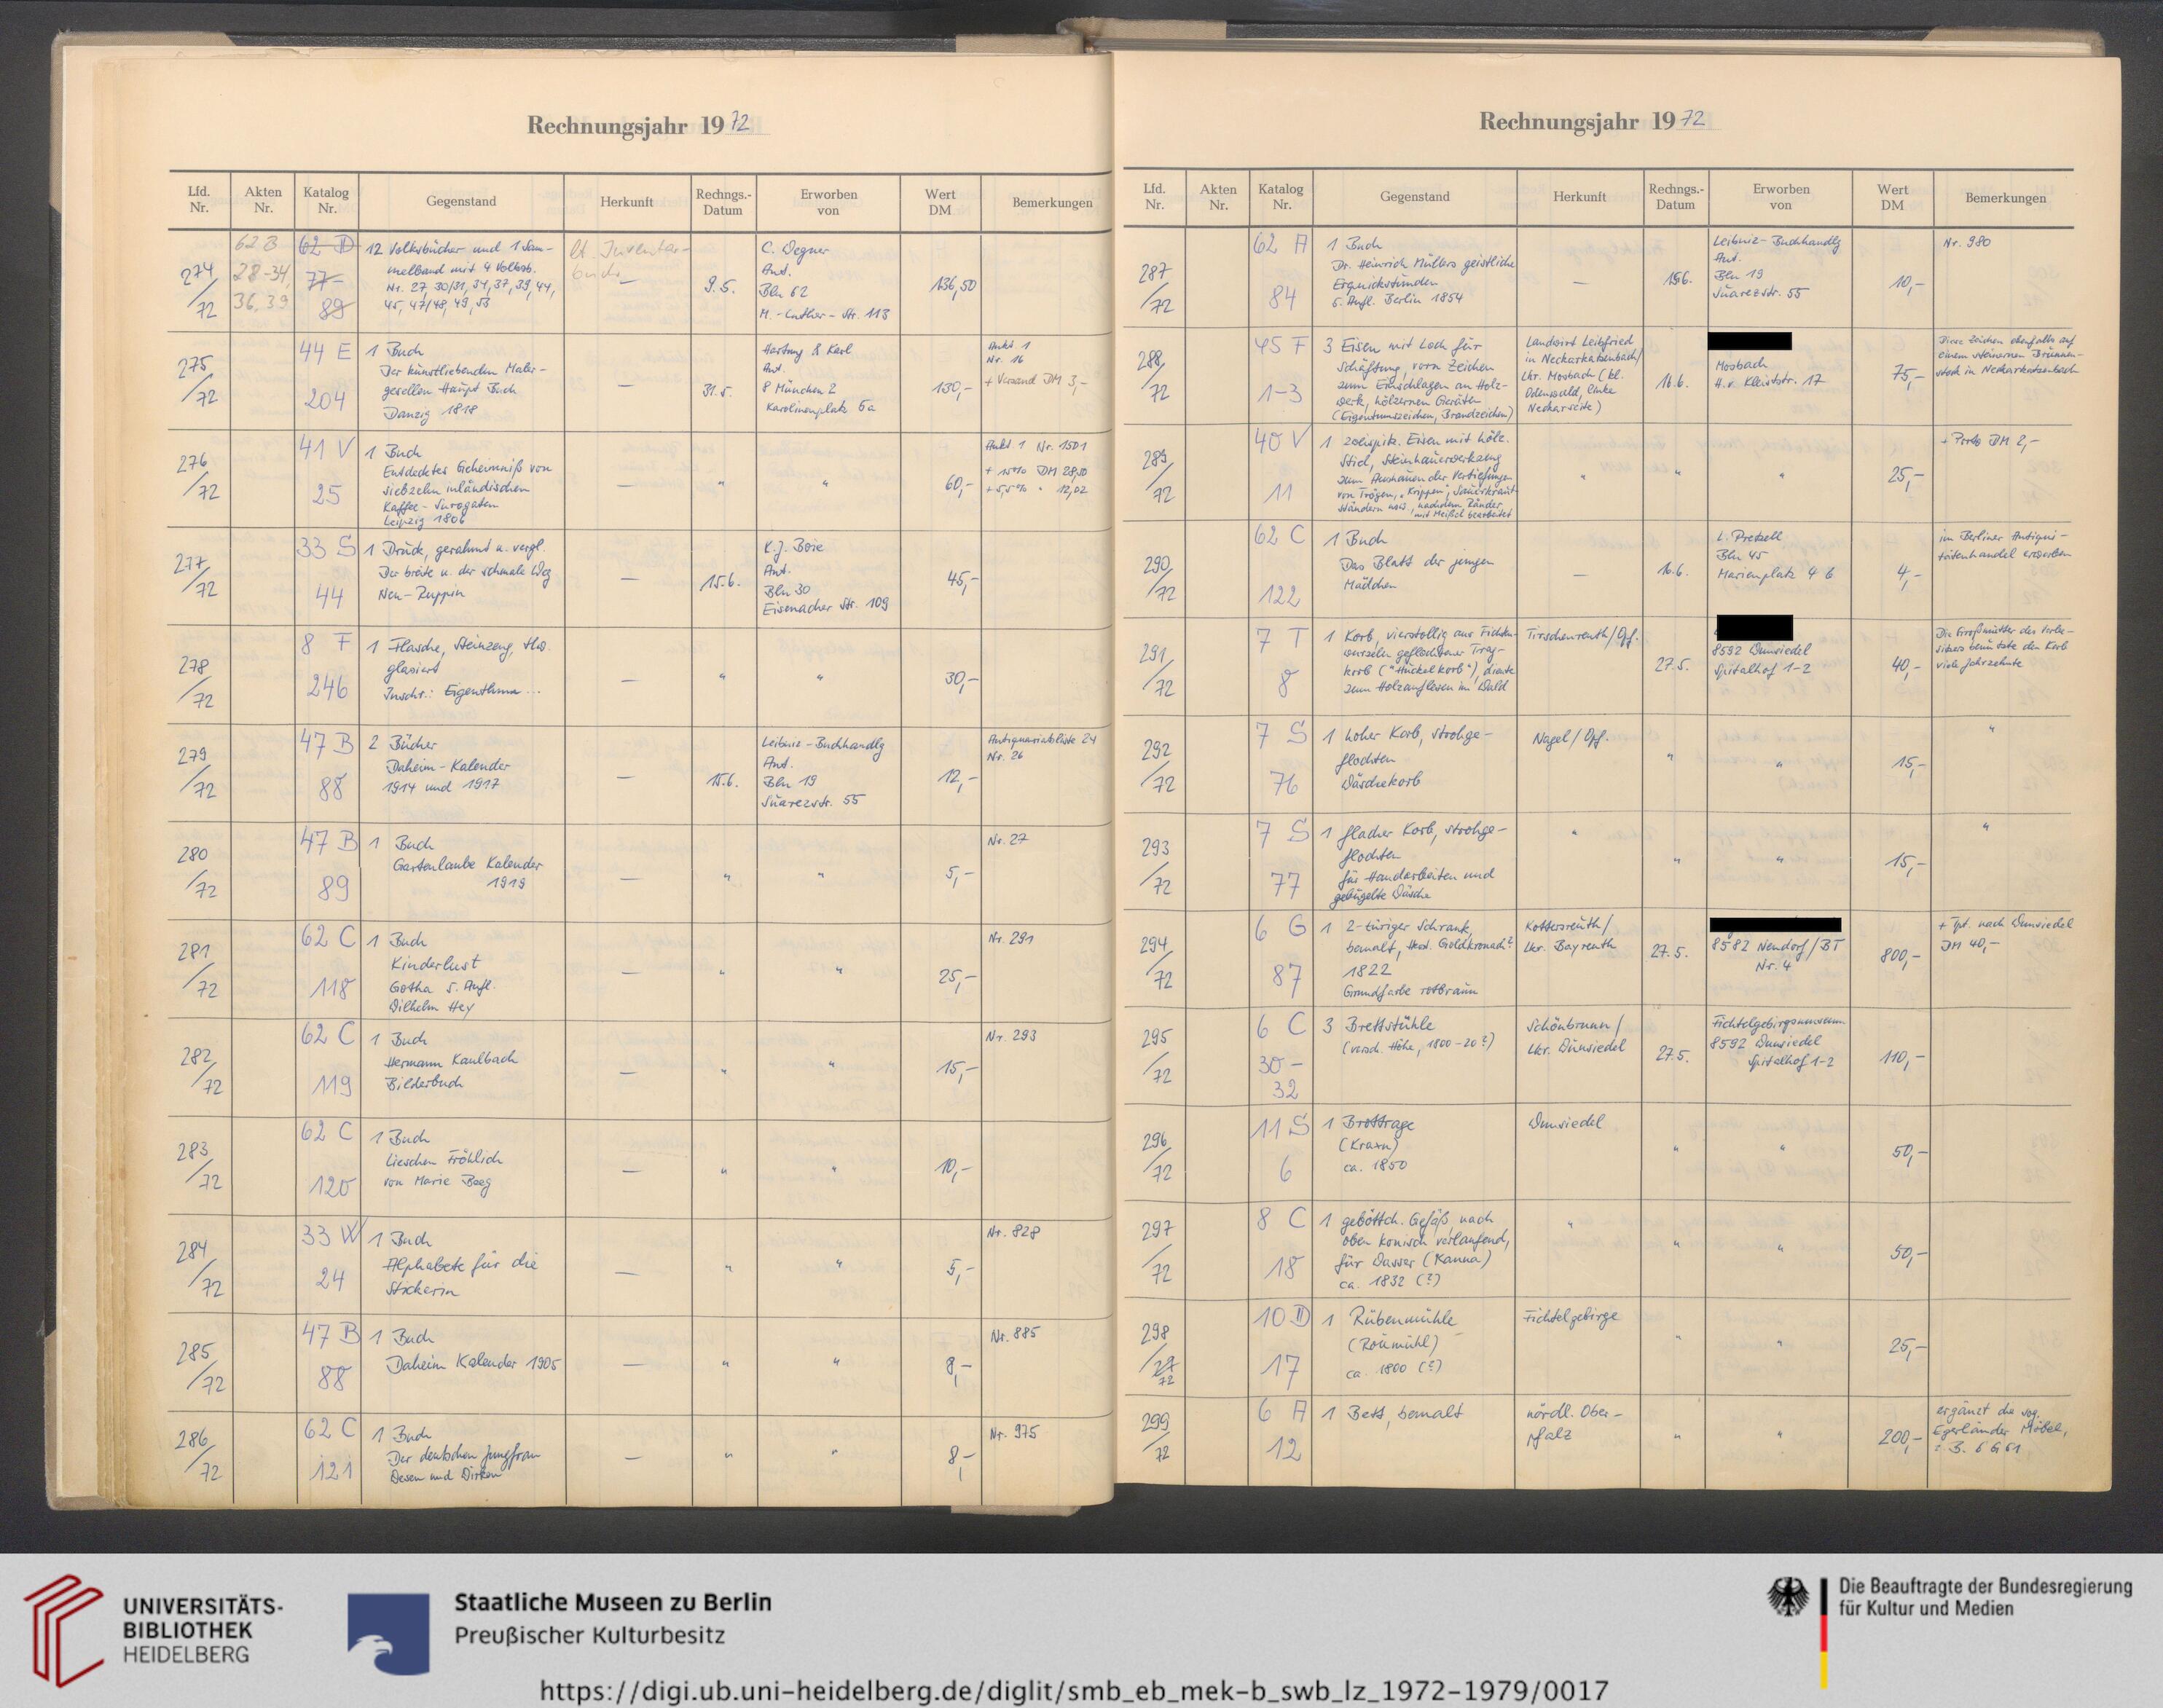 Rechnungsjahr 1972
Lfd. Nr. Akten Nr. Katalog Nr. Gegenstand Herkunft Rechngs.-Datum Erworben von Wert DM Bemerkungen
274/72
62 B
28-34,
36, 39
62 D
77
89
12 Volksbücher und 1 Sam-
melband mit 4 Volksb.
Nr. 27, 30/31, 34, 37, 39, 44,
45, 47/48, 49, 53
lt. Inventar-
buch
—
9.5.
C. Wegner
Ant.
Bln 62
M.-Luther-Str. 113
136,50
275/72
44 E
204
1 Buch
Der kunstliebenden Maler-
gesellen Haupt Buch
Danzig 1818
—
31.5.
Hartung & Karl
Ant.
8 München 2
Karolinenplatz 5a
130,-
Aukt. 1
Nr. 16
+ Versand DM 3,-
276/72
41 V
25
1 Buch
Entdecktes Geheimniß von
siebzehn inländischen
Kaffee-Surogaten
Leipzig 1806
—
"
"
60,-
Aukt. 1 Nr. 1501
+ 15% DM 28,50
+ 5,5% " 12,02
277/72
33 S
44
1 Druck, gerahmt u. vergl.
Der breite u. der schmale Weg
Neu-Ruppin
—
15.6.
K.J. Boie
Ant.
Bln 30
Eisenacher Str. 109
45,-
278/72
8 F
246
1 Flasche, Steinzeug,
glasiert
Inschr.: Eigenthum ...
—
"
"
30,-
279/72
47 B
88
2 Bücher
Daheim-Kalender
1914 und 1917
—
15.6.
Leibniz-Buchhandlg
Ant.
Bln 19
Suarezstr. 55
12,-
Antiquariatsliste 24
Nr. 26
280/72
47 B
89
1 Buch
Gartenlaube Kalender
1919
—
"
"
5,-
Nr. 27
281/72
62 C
118
1 Buch
Kinderlust
Gotha 5. Aufl.
Wilhelm Hey
—
"
"
25,-
Nr. 291
282/72
62 C
119
1 Buch
Hermann Kaulbach
Bilderbuch
—
"
"
15,-
Nr. 293
283/72
62 C
120
1 Buch
Lieschen Fröhlich
von Marie Beeg
—
"
"
10,-
284/72
33 W
24
1 Buch
Alphabete für die
Stickerin
—
"
"
5,-
Nr. 828
285/72
47 B
88
1 Buch
Daheim Kalender 1905
—
"
"
8,-
Nr. 885
286/72
62 C
121
1 Buch
Der deutschen Jungfrau
Wesen und Wirken
—
"
"
8,-
Nr. 975
Rechnungsjahr 1972
Lfd. Nr. Akten Nr. Katalog Nr. Gegenstand Herkunft Rechngs.-Datum Erworben von Wert DM Bemerkungen
287/72
62 A
84
1 Buch
Dr. Heinrich Müllers geistliche
Erquickstunden
5. Aufl. Berlin 1854
—
15.6.
Leibniz-Buchhandlg
Ant.
Bln 19
Suarezstr. 55
10,-
Nr. 980
288/72
45 F
1-3
3 Eisen mit Loch für
Schäftung, vorn Zeichen
zum Einschlagen an Holz-
werk, hölzernen Geräten
(Eigentumszeichen, Brandzeichen)
Landwirt Leibfried
in Neckarkatzenbach/
Lkr. Mosbach (kl.
Odenwald, linke
Neckarseite)
16.6.
Mosbach
H.v. Kleiststr. 17
75,-
Diese Zeichen ebenfalls auf
einem steinernen Brunnen-
stock in Neckarkatzenbach
289/72
40 V
11
1 zweispitz. Eisen mit hölz.
Stiel, Steinhauerwerkzeug
zum Aushauen der Vertiefungen
von Trögen, "Krippen", Sauerkraut-
ständern usw., nachdem Ränder
mit Meißel bearbeitet
"
"
"
25,-
+ Porto DM 2,-
290/72
62 C
122
1 Buch
Das Blatt der jungen
Mädchen
—
16.6.
L. Pretzell
Bln 45
Marienplatz 4 b
4,-
im Berliner Antiqui-
tätenhandel erworben
291/72
7 T
8
1 Korb, vierstollig aus Fichten-
wurzeln geflochtener Trag-
korb ("Huckelkorb"), diente
zum Holzauflesen im Wald
Tirschenreuth/Opf.
27.5.
8592 Wunsiedel
Spitalhof 1-2
40,-
Die Großmutter des Vorbe-
sitzers benutzte den Korb
viele Jahrzehnte
292/72
7 S
76
1 hoher Korb, strohge-
flochten
Wäschekorb
Nagel/Opf.
"
"
15,-
"
293/72
7 S
77
1 flacher Korb, strohge-
flochten
für Handarbeiten und
gebügelte Wäsche
"
"
"
15,-
"
294/72
6 G
87
1 2-türiger Schrank,
bemalt, Werk. Goldkronach?
1822
Grundfarbe rotbraun
Kottersreuth/
Lkr. Bayreuth
27.5.
8582 Neudorf/BT
Nr. 4
800,-
+ Tpt. nach Wunsiedel
DM 40,-
295/72
6 C
30-
32
3 Brettstühle
(versch. Höhe, 1800-20?)
Schönbrunn/
Lkr. Wunsiedel
27.5.
Fichtelgebirgsmuseum
8592 Wunsiedel
Spitalhof 1-2
110,-
296/72
11 S
6
1 Brottrage
(Kraxn)
ca. 1850
Wunsiedel
"
"
50,-
297/72
8 C
18
1 geböttch. Gefäß, nach
oben konisch verlaufend,
für Wasser (Kanna)
ca. 1832 (?)
"
"
"
50,-
298/72
10 D
17
1 Rübenmühle
(Roümühl)
ca. 1800 (?)
Fichtelgebirge
"
"
25,-
299/72
6 A
12
1 Bett, bemalt
nördl. Ober-
pfalz
"
"
200,-
ergänzt die sog.
Egerländer Möbel,
z.B. 6 G 61
UNIVERSITÄTS-
BIBLIOTHEK
HEIDELBERG
Staatliche Museen zu Berlin
Preußischer Kulturbesitz
Die Beauftragte der Bundesregierung
für Kultur und Medien
https://digi.ub.uni-heidelberg.de/diglit/smb_eb_mek-b_swb_lz_1972-1979/0017